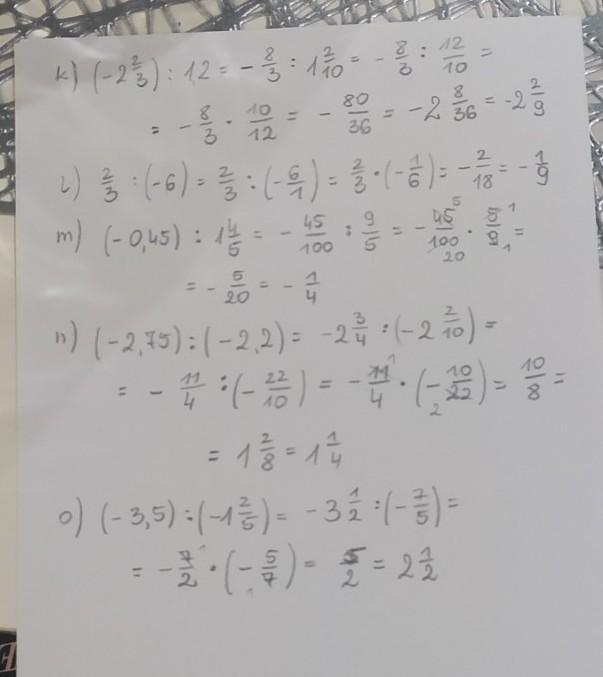 k) (-2 2/3) : 1,2 = - 8/3 : 1 2/10 = - 8/3 : 12/10 =
= - 8/3 · 10/12 = - 80/36 = -2 8/36 = -2 2/9
l) 2/3 : (-6) = 2/3 : (- 6/1) = 2/3 · (- 1/6) = - 2/18 = - 1/9
m) (-0,45) : 1 4/5 = - 45/100 : 9/5 = - 45 5/100 20 · 5 1/9 1 =
= - 5/20 = - 1/4
n) (-2,75) : (-2,2) = -2 3/4 : (-2 2/10) =
= - 11/4 : (- 22/10) = - 11 1/4 · (- 10/22 2) = 10/8 =
= 1 2/8 = 1 1/4
o) (-3,5) : (-1 2/5) = -3 1/2 : (- 7/5) =
= - 7 1/2 · (- 5/7 1) = 5/2 = 2 1/2
E